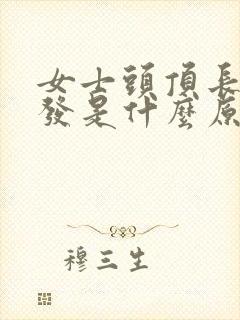 女士頭頂長
發是什麼原
穆三生